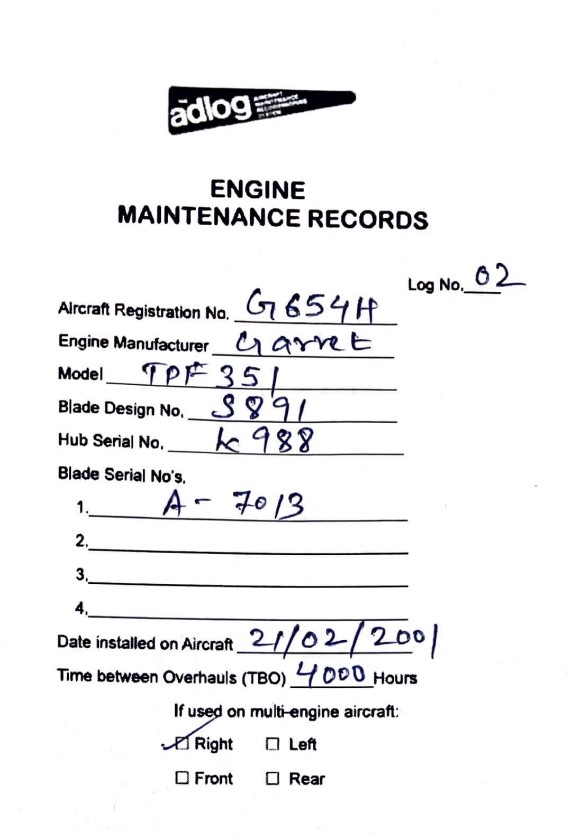 THE
adlog AIRCRAFT MAINTENANCE RECORDKEEPING SYSTEM
ENGINE
MAINTENANCE RECORDS
Log No. 02
Aircraft Registration No. G654H
Engine Manufacturer Garret
Model TPF 351
Blade Design No. S891
Hub Serial No. K988
Blade Serial No's.
1. A- 7013
2.
3.
4.
Date installed on Aircraft 21/02/2001
Time between Overhauls (TBO) 4000 Hours
If used on multi-engine aircraft:
Right Left
Front Rear